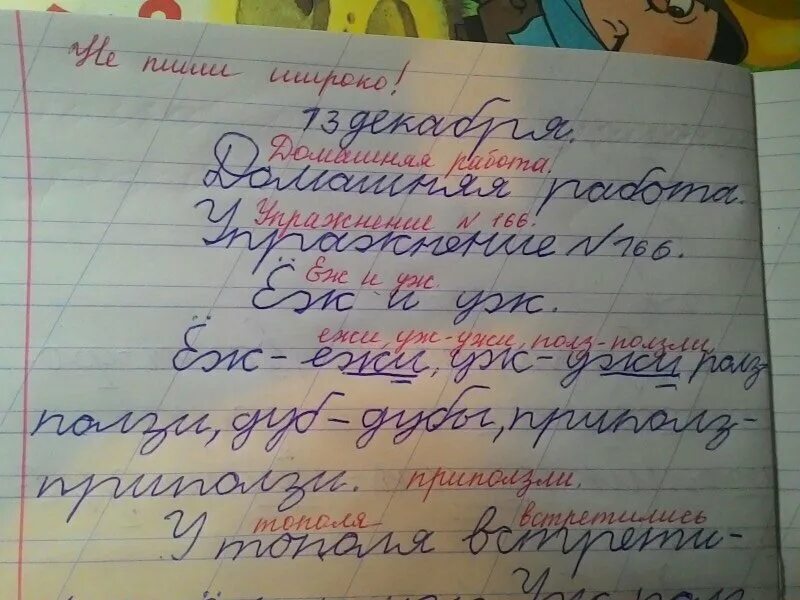 Не пиши широко!
13 декабря.
Домашняя работа.
Домашняя работа.
Упражнение N 166.
Упражнение N 166.
Еж и уж.
Ёж и уж.
ежи, уж-ужи, полз-ползли,
Ёж- ежи, уж- ужи, полз-
ползи, дуб-дубы, приполз-
приползи. приползли.
тополя встретились
У тополя встрети-